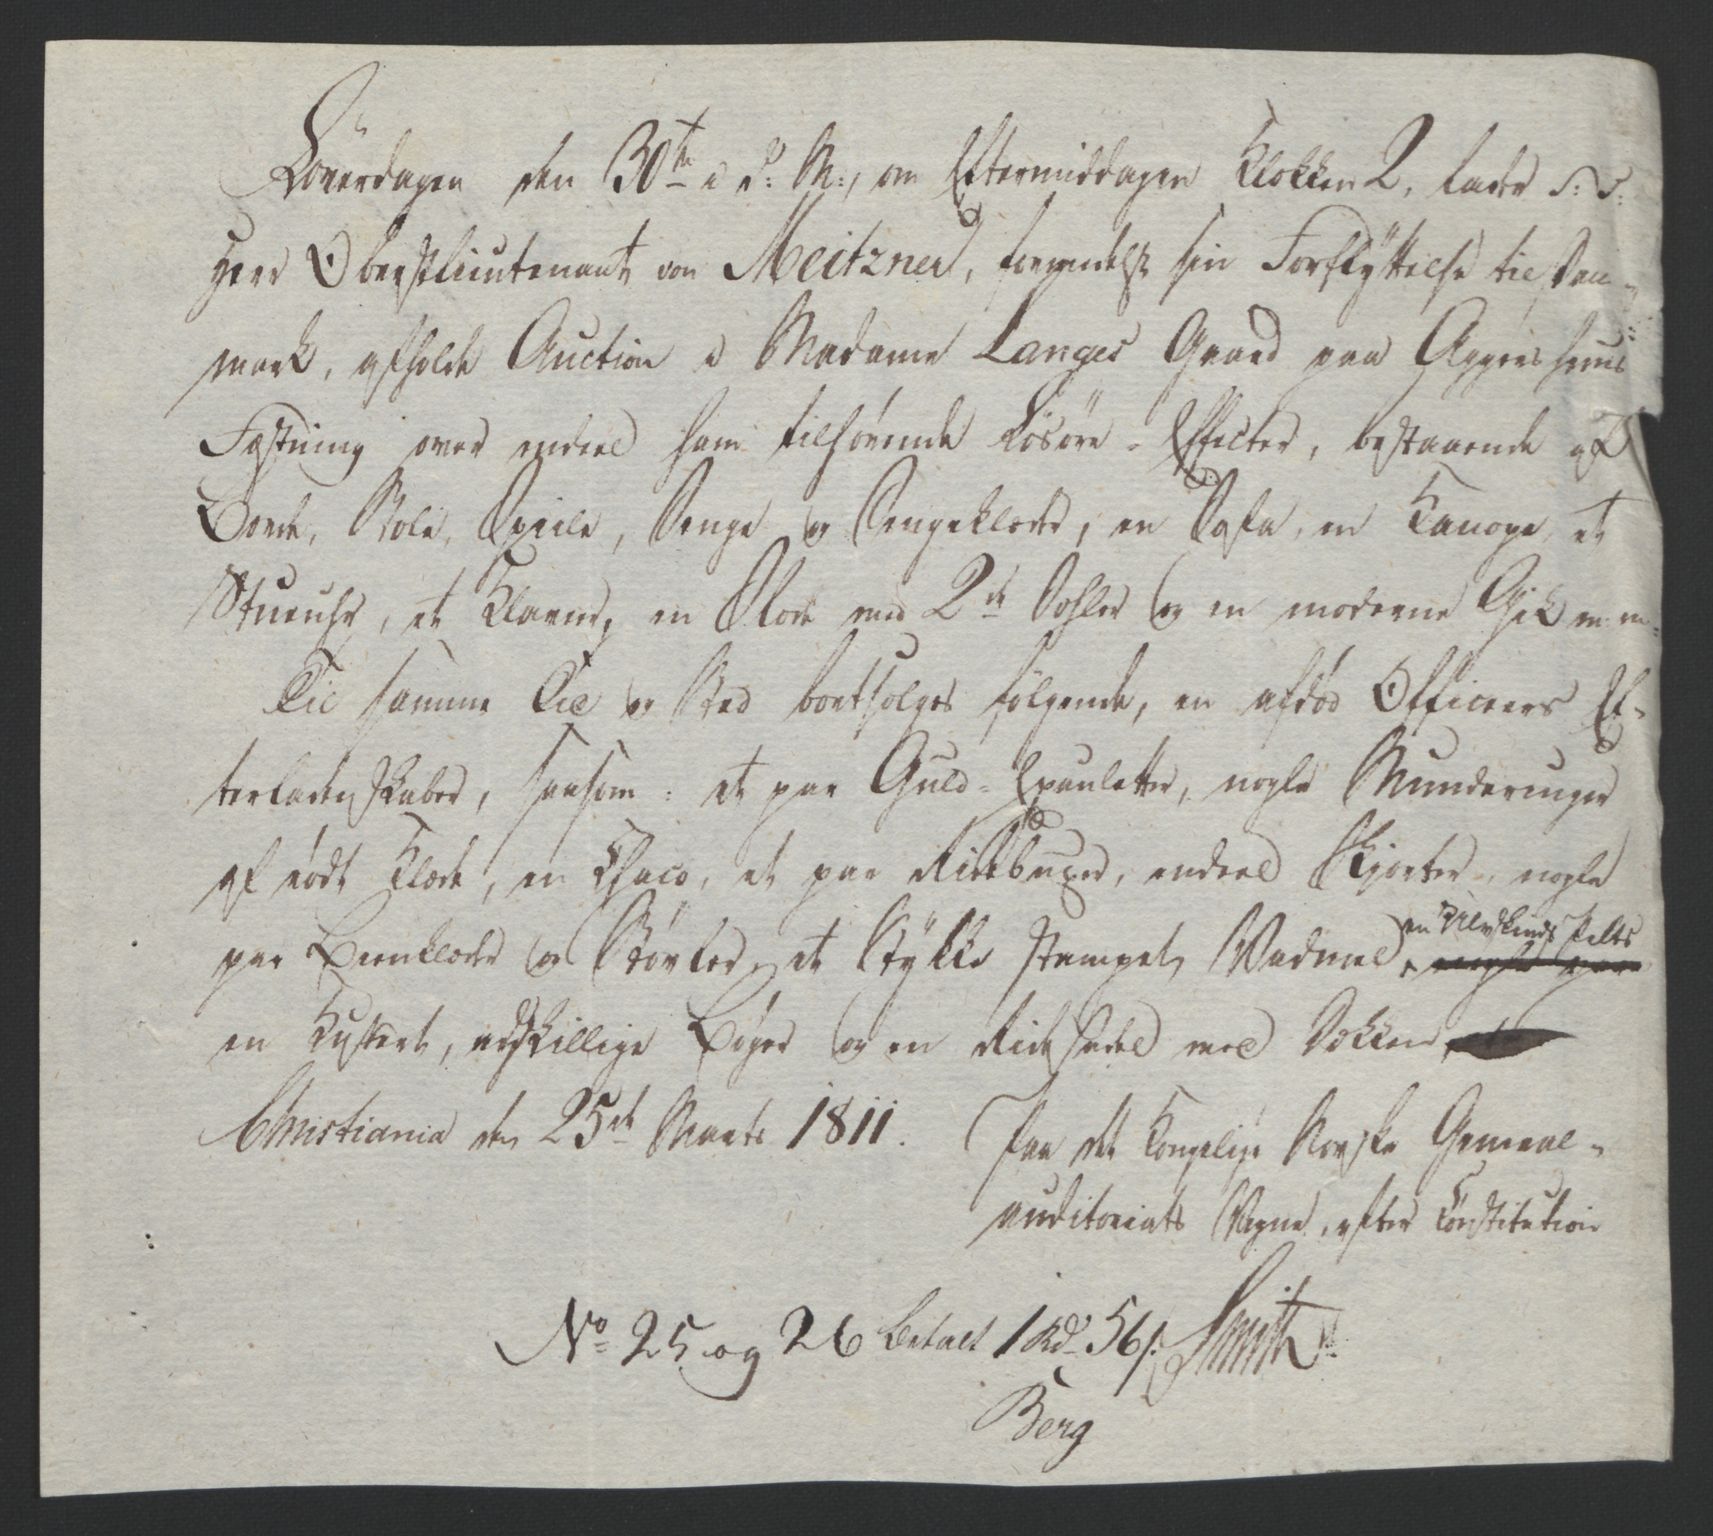 Löverdagen den 30te i d: M:, om Eftermiddagen Klokken 2, lader S: T:
Herr Oberstlieutenant von Meitzner, formedelst sin Forflÿttelse til Dan-
mark, afholde Auction i Madame Langes Gaard paa Aggershuus
Fæstning over endeel ham tilhørende Løsøre-Effecter, bestaaende af
Borde, Stole, Speile, Senge og Sengeklæder, en Sofa, en Kanape, et
Stueuhr, et Klaveer, en Slæde med 2de Sæhler og en moderne Gik m: m:
Til samme Tid og Sted bortsælges følgende, en afdød Officeers Ef-
terladenskaber, saasom: et par Guld-Epauletter, nogle Munderinger
af rødt Klæde, en Chaco, et par Ridebuxer, endeel Skjorter, nogle
par Beenklæder og Støvler, et Stÿkke stampet Vadmel, en Ulveskinds Pelts
en Kuffert, adskillige Bøger og en Ridesadel med Dækken
Christiania den 25de Marts 1811.
Paa det Kongelige Norske General-
auditoriats Vegne, efter Constitution
Smith
No 25 og 26 betalt 1 Rd 56 s:
Berg